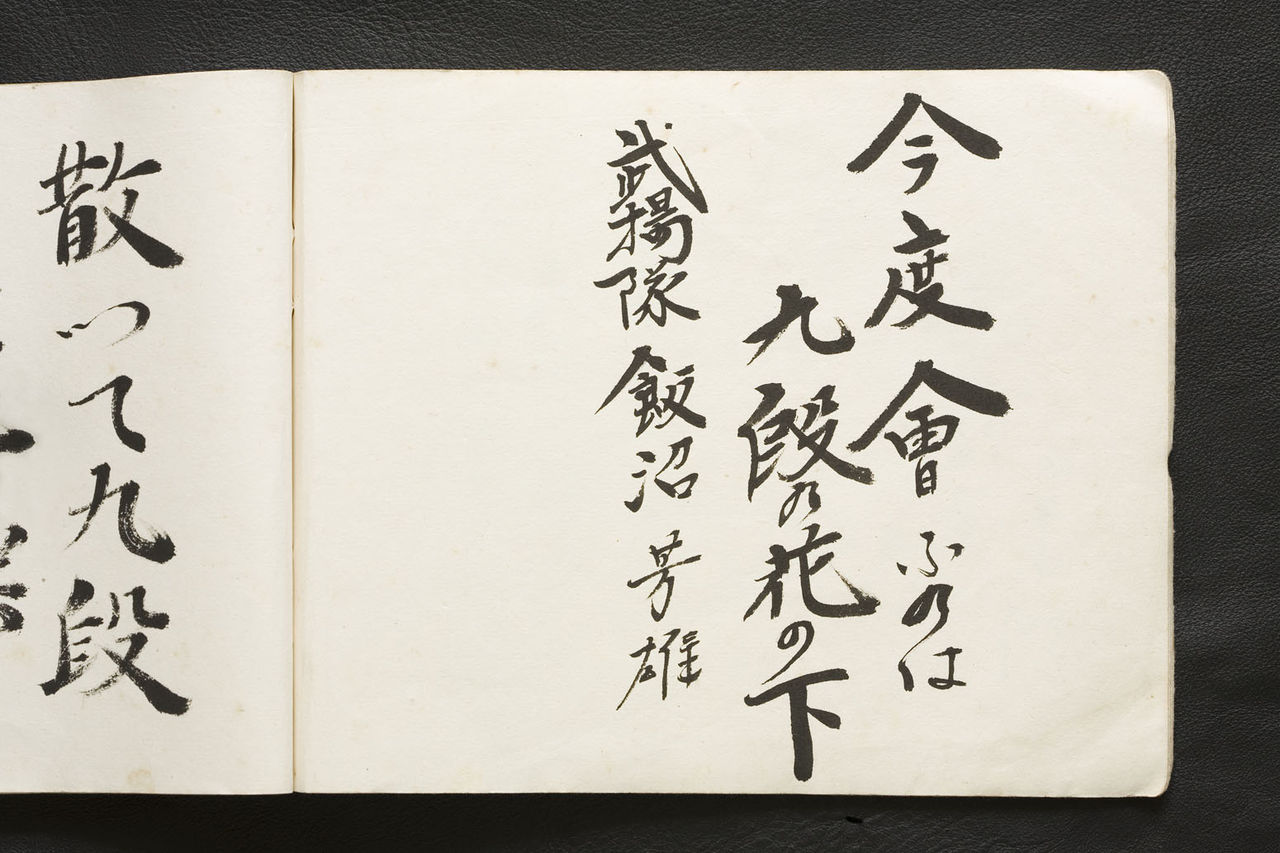 今度會ふのは
九段の花の下
武揚隊 飯沼芳雄
散つて九段